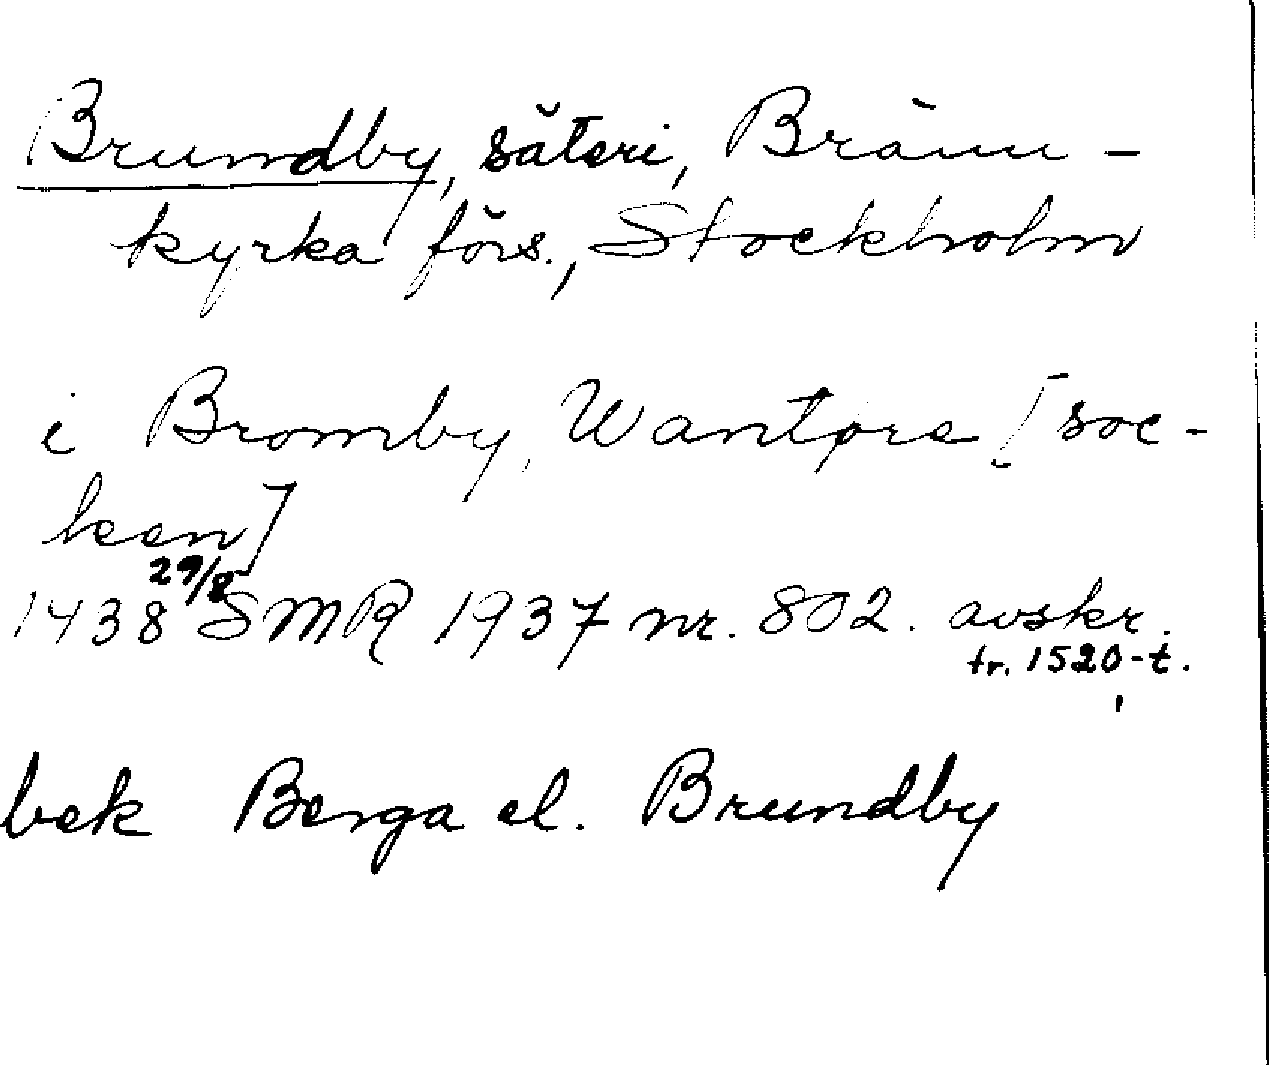 Brundby, säteri, Bränn-
kyrka förs., Stockholm
i Bromby, Wantørs [soc-
ken]
1438 29/8 SMR 1937 nr. 802. avskr.
fr. 1520-t.
bek Berga el. Brundby